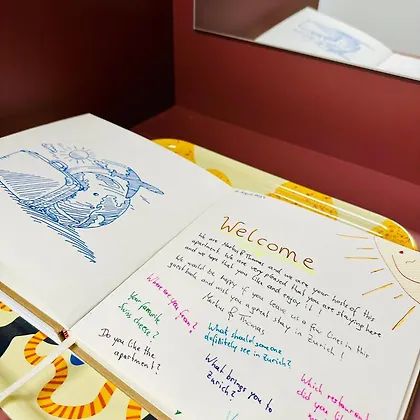 Welcome
We are Markus & Thomas and we are your hosts of this
apartment. We are very pleased that you are staying here
and we hope that you like and enjoy it!
We would be happy if you leave us a few lines in this
guestbook and wish you a great stay in Zurich!
Markus &
Thomas
Where are you from?
Your favorite
Swiss cheese?
Do you like the
apartment?
What should someone
definitely see in Zurich?
What brings you to
Zurich?
Which restaurant
did you like